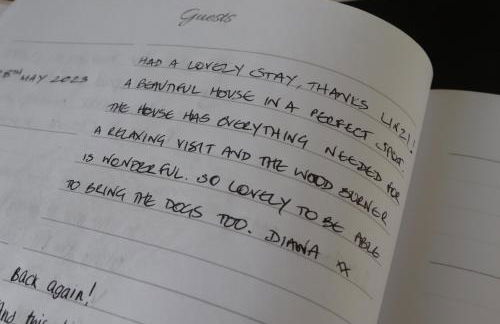 Guests
MAY 2023
HAD A LOVELY STAY, THANKS LINZI!
A BEAUTIFUL HOUSE IN A PERFECT SPOT.
THE HOUSE HAS EVERYTHING NEEDED FOR
A RELAXING VISIT AND THE WOOD BURNER
IS WONDERFUL. SO LOVELY TO BE ABLE
TO BRING THE DOGS TOO. DIANA XX
Back again!
And this